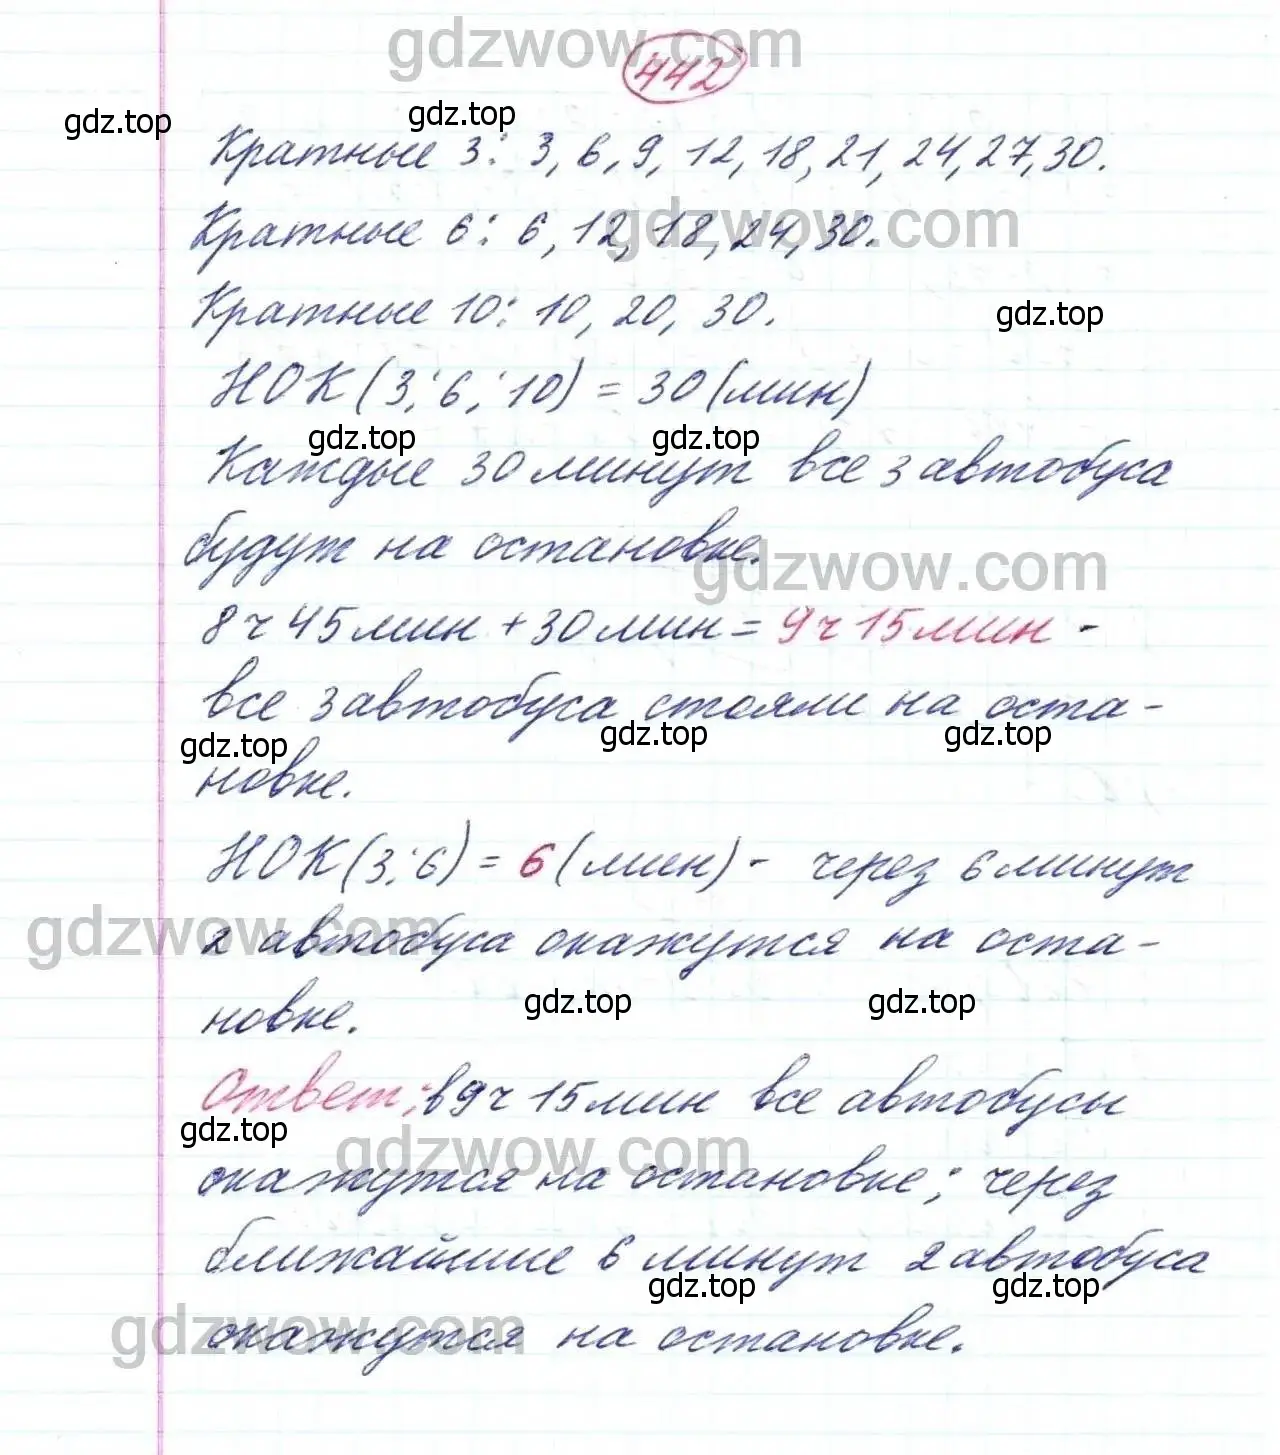 gdzwow.com
442
gdz.top gdz.top
Кратные 3: 3, 6, 9, 12, 18, 21, 24, 27, 30.
gdzwow.com
Кратные 6: 6, 12, 18, 24, 30.
Кратные 10: 10, 20, 30.
gdz.top
НОК (3; 6; 10) = 30 (мин)
gdz.top gdz.top
Каждые 30 минут все 3 автобуса
будут на остановке.
gdzwow.com
8 ч 45 мин + 30 мин = 9 ч 15 мин -
все 3 автобуса стояли на оста-
gdz.top gdz.top gdz.top
новке.
НОК (3; 6) = 6 (мин) - через 6 минут
gdzwow.com
2 автобуса окажутся на оста-
gdz.top gdz.top
новке.
Ответ: в 9 ч 15 мин все автобусы
gdz.top
gdzwow.com
окажутся на остановке; через
ближайшие 6 минут 2 автобуса
gdz.top gdz.top
gdzwow.com
окажутся на остановке.